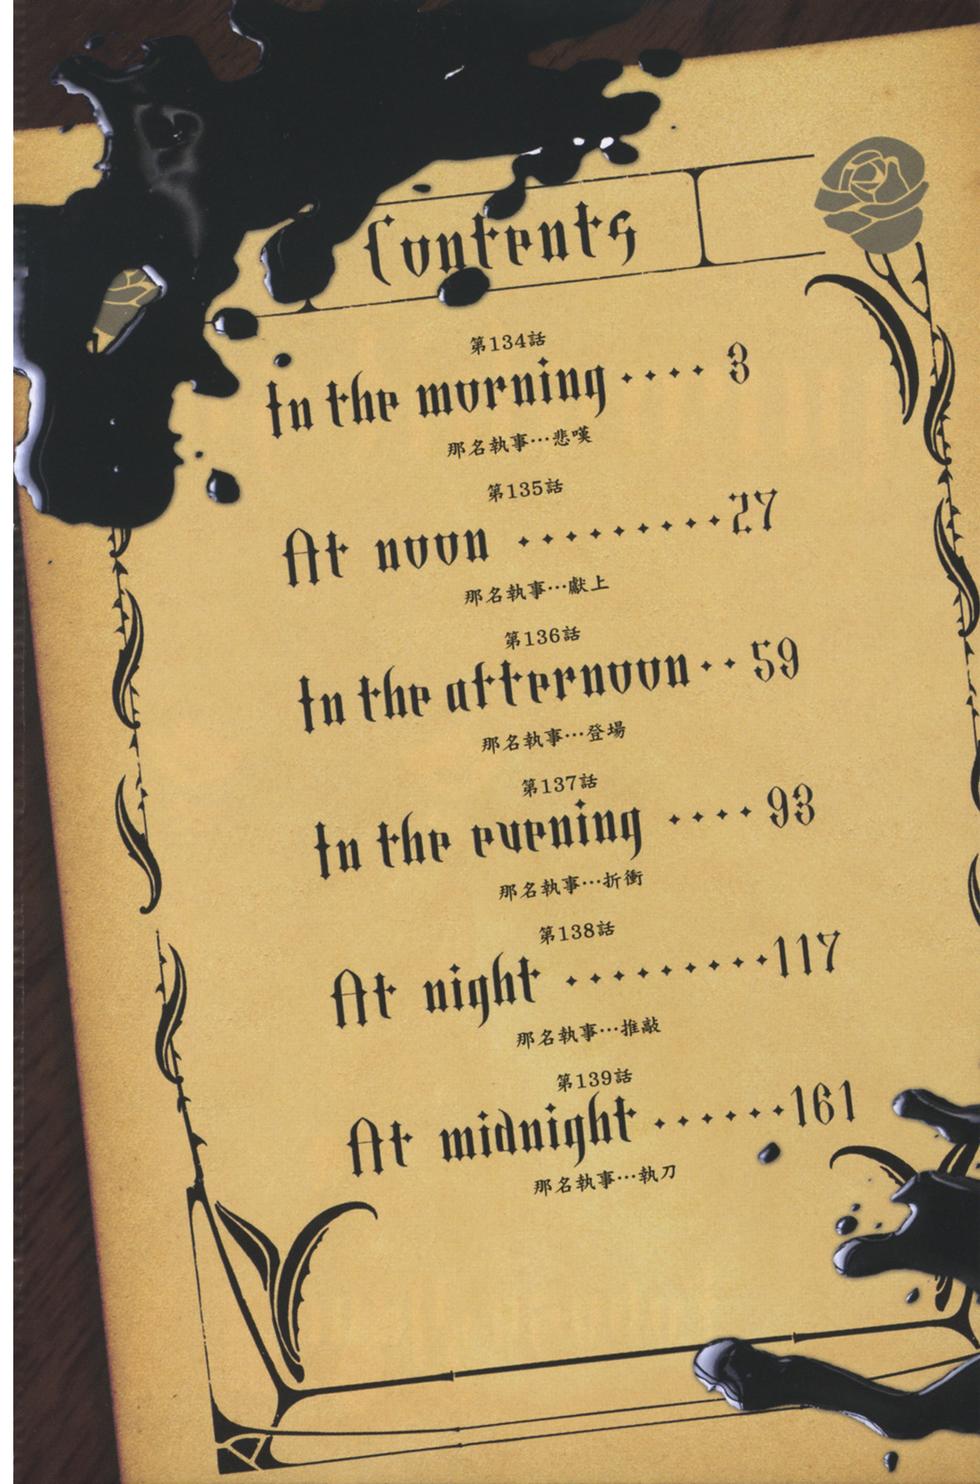 Contents
第134話
In the morning ···· 3
那名執事…悲嘆
第135話
At noon ·········27
那名執事…獻上
第136話
In the afternoon ·· 59
那名執事…登場
第137話
In the evening ···· 93
那名執事…折衝
第138話
At night ·········117
那名執事…推敲
第139話
At midnight ······161
那名執事…執刀